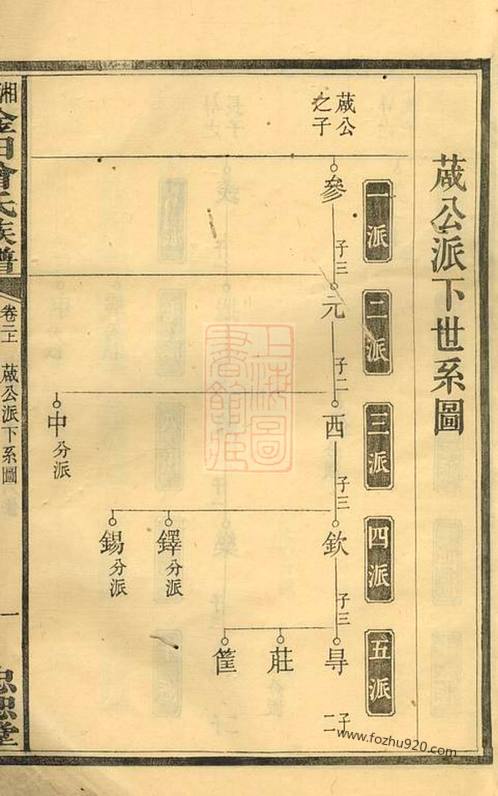 蕆公派下世系圖
一派
二派
三派
四派
五派
蕆公
之子
參
子三
元
子二
西
子三
欽
子三
㝷
子二
莊
筐
鐸分派
錫分派
中分派
湘
金田曾氏族譜
卷二上
蕆公派下系圖
一
忠恕堂
上海圖書館藏
www.fozhu920.com